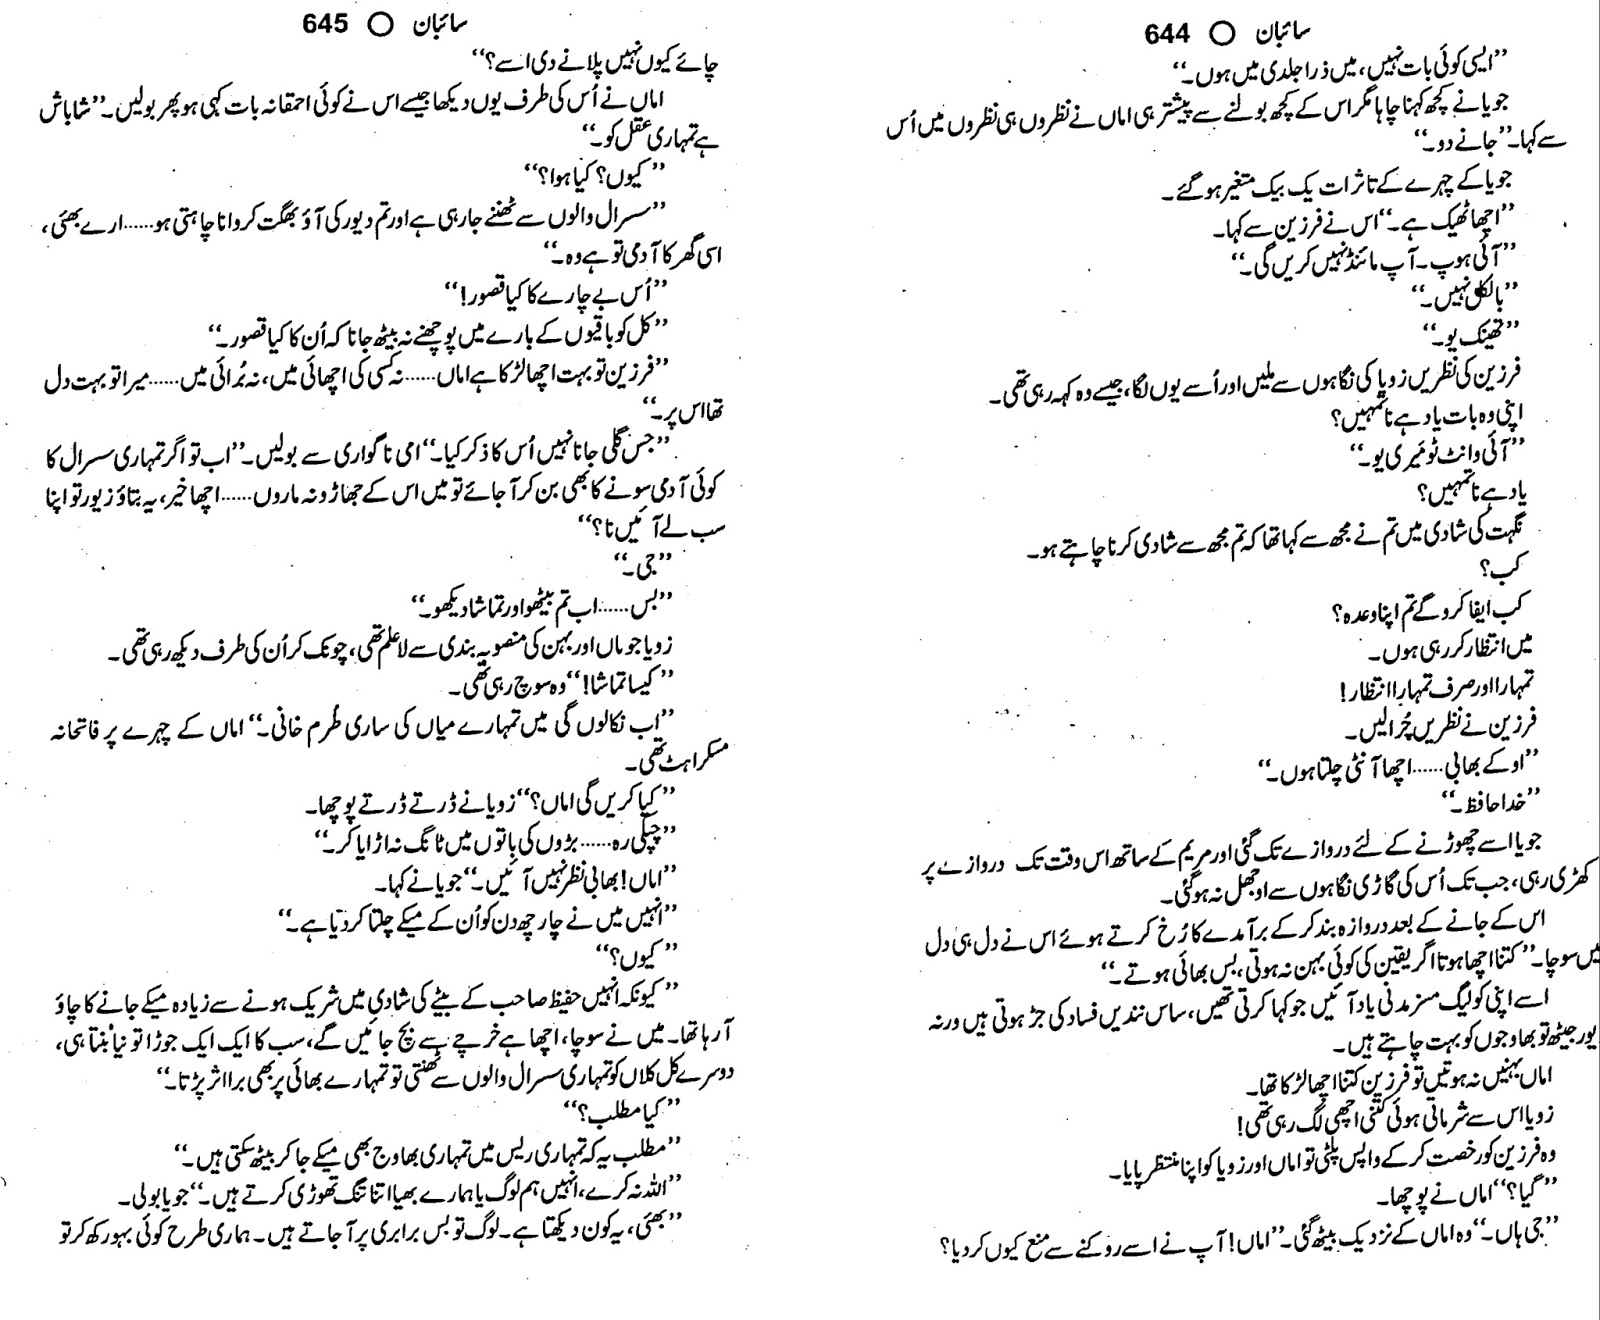 سائبان O 644
”ایسی کوئی بات نہیں، میں ذرا جلدی میں ہوں۔“
جویا نے کچھ کہنا چاہا مگر اس کے کچھ بولنے سے پیشتر ہی اماں نے نظروں ہی نظروں میں اُس
سے کہا۔ ”جانے دو۔“
جویا کے چہرے کے تاثرات یک بیک متغیر ہو گئے۔
”اچھا ٹھیک ہے۔“ اس نے فرزین سے کہا۔
”آئی ہوپ۔ آپ مائنڈ نہیں کریں گی۔“
”بالکل نہیں۔“
”تھینک یو۔“
فرزین کی نظریں زویا کی نگاہوں سے ملیں اور اُسے یوں لگا، جیسے وہ کہہ رہی تھی۔
اپنی وہ بات یاد ہے نا تمہیں؟
”آئی وانٹ ٹو میری یو۔“
یاد ہے نا تمہیں؟
نگہت کی شادی میں تم نے مجھ سے کہا تھا کہ تم مجھ سے شادی کرنا چاہتے ہو۔
کب؟
کب ایفا کرو گے تم اپنا وعدہ؟
میں انتظار کر رہی ہوں۔
تمہارا اور صرف تمہارا انتظار!
فرزین نے نظریں چُرا لیں۔
”اوکے بھابی...... اچھا آنٹی چلتا ہوں۔“
”خدا حافظ۔“
جویا اسے چھوڑنے کے لئے دروازے تک گئی اور مریم کے ساتھ اس وقت تک دروازے پر
کھڑی رہی، جب تک اُس کی گاڑی نگاہوں سے اوجھل نہ ہو گئی۔
اس کے جانے کے بعد دروازہ بند کر کے برآمدے کا رُخ کرتے ہوئے اس نے دل ہی دل
میں سوچا۔ ”کتنا اچھا ہوتا اگر یقین کی کوئی بہن نہ ہوتی، بس بھائی ہوتے۔“
اسے اپنی کولیگ مسز مدنی یاد آئیں جو کہا کرتی تھیں، ساس نندیں فساد کی جڑ ہوتی ہیں ورنہ
یور جیٹھ تو بھاوجوں کو بہت چاہتے ہیں۔
اماں بہنیں نہ ہوتیں تو فرزین کتنا اچھا لڑکا تھا۔
زویا اس سے شرماتی ہوئی کتنی اچھی لگ رہی تھی!
وہ فرزین کو رخصت کر کے واپس پلٹی تو اماں اور زویا کو اپنا منتظر پایا۔
”گیا؟“ اماں نے پوچھا۔
”جی ہاں۔“ وہ اماں کے نزدیک بیٹھ گئی۔ ”اماں! آپ نے اسے روکنے سے منع کیوں کر دیا؟
سائبان O 645
چائے کیوں نہیں پلانے دی اسے؟“
اماں نے اُس کی طرف یوں دیکھا جیسے اس نے کوئی احمقانہ بات کہی ہو پھر بولیں۔ ”شاباش
ہے تمہاری عقل کو۔“
”کیوں؟ کیا ہوا؟“
”سسرال والوں سے ٹھننے جا رہی ہے اور تم دیور کی آؤ بھگت کروانا چاہتی ہو...... ارے بھئی،
اسی گھر کا آدمی تو ہے وہ۔“
”اُس بے چارے کا کیا قصور!“
”کل کو باقیوں کے بارے میں پوچھنے نہ بیٹھ جانا کہ اُن کا کیا قصور۔“
”فرزین تو بہت اچھا لڑکا ہے اماں...... نہ کسی کی اچھائی میں، نہ بُرائی میں...... میرا تو بہت دل
تھا اس پر۔“
”جس گلی جانا نہیں اُس کا ذکر کیا۔“ امی ناگواری سے بولیں۔ ”اب تو اگر تمہاری سسرال کا
کوئی آدمی سونے کا بھی بن کر آ جائے تو میں اس کے جھاڑو نہ ماروں...... اچھا خیر، یہ بتاؤ زیور تو اپنا
سب لے آئیں نا؟“
”جی۔“
”بس...... اب تم بیٹھو اور تماشا دیکھو۔“
زویا جو ماں اور بہن کی منصوبہ بندی سے لاعلم تھی، چونک کر اُن کی طرف دیکھ رہی تھی۔
”کیسا تماشا!“ وہ سوچ رہی تھی۔
”اب نکالوں گی میں تمہارے میاں کی ساری طُرم خانی۔“ اماں کے چہرے پر فاتحانہ
مسکراہٹ تھی۔
”کیا کریں گی اماں؟“ زویا نے ڈرتے ڈرتے پوچھا۔
”چپکی رہ...... بڑوں کی باتوں میں ٹانگ نہ اڑایا کر۔“
”اماں! بھابی نظر نہیں آئیں۔“ جویا نے کہا۔
”انہیں میں نے چار چھ دن کو اُن کے میکے چلتا کر دیا ہے۔“
”کیوں؟“
”کیونکہ انہیں حفیظ صاحب کے بیٹے کی شادی میں شریک ہونے سے زیادہ میکے جانے کا چاؤ
آ رہا تھا۔ میں نے سوچا، اچھا ہے خرچے سے بچ جائیں گے، سب کا ایک ایک جوڑا تو نیا بنتا ہی،
دوسرے کل کلاں کو تمہاری سسرال والوں سے ٹھنتی تو تمہارے بھائی پر بھی برا اثر پڑتا۔“
”کیا مطلب؟“
”مطلب یہ کہ تمہاری ریس میں تمہاری بھاوج بھی میکے جا کر بیٹھ سکتی ہیں۔“
”اللہ نہ کرے، انہیں ہم لوگ یا ہمارے بھیا اتنا تنگ تھوڑی کرتے ہیں۔“ جویا بولی۔
”بھئی، یہ کون دیکھتا ہے۔ لوگ تو بس برابری پر آ جاتے ہیں۔ ہماری طرح کوئی بہو رکھ کر تو